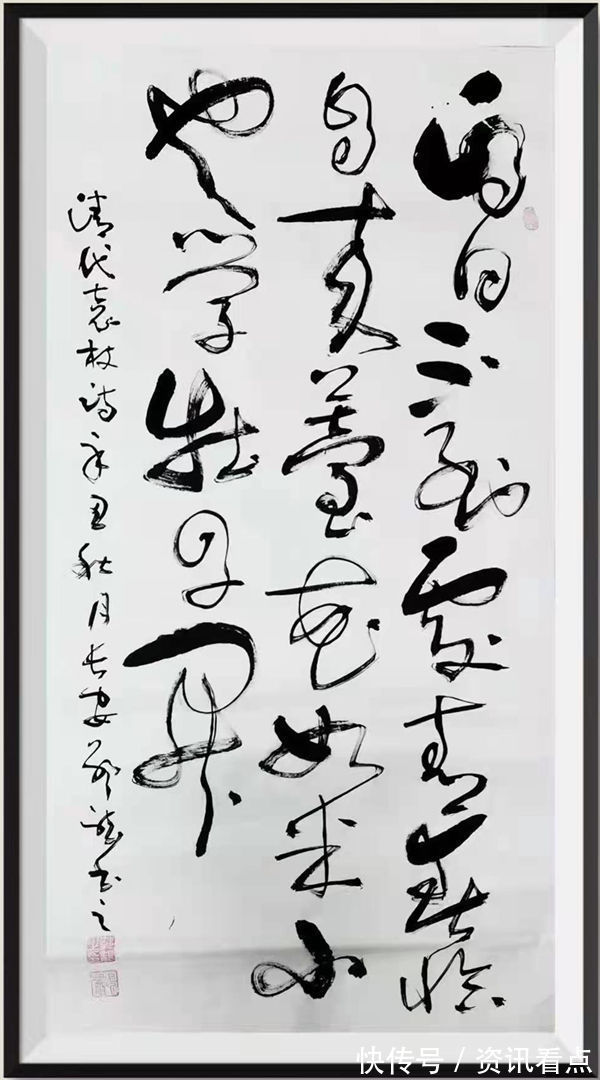 白日不到處青春恰
自来薹花如米小
也学牡丹開
清代袁枚詩辛丑秋月长安龍书之
快传号 / 资讯看点